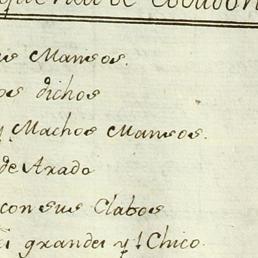 de
es Mansos.
os dichos
y Machos Mansos.
de Arado
con sus Clabos
grandes y 1 Chico.